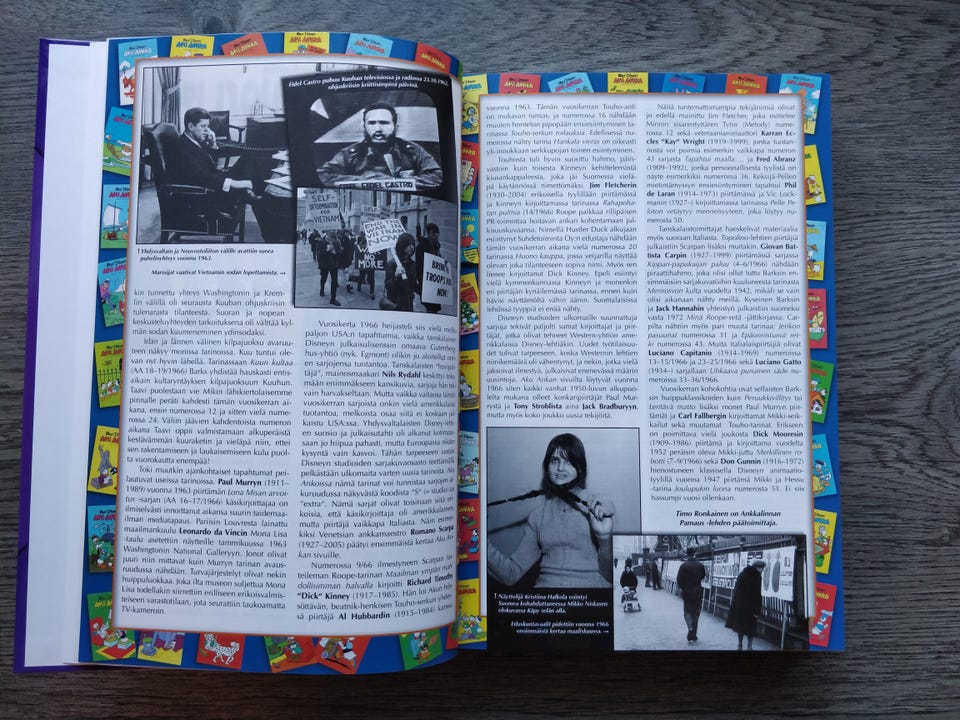 Fidel Castro puhuu Kuuban televisiossa ja radiossa 23.10.1962,
ohjuskriisin kriittisimpinä päivinä.
FIDEL CASTRO
SELF-
DETERMINATION
FOR
VIETNAM
END
THE
WAR IN
VIETNAM
NOW
NO
MORE
BRING
TROOPS
NOW!
↑ Yhdysvaltain ja Neuvostoliiton välille avattiin suora
puhelinyhteys vuonna 1963.
Marssijat vaativat Vietnamin sodan lopettamista. →
kin tunnettu yhteys Washingtonin ja Krem-
lin välillä oli seurausta Kuuban ohjuskriisin
tulenarasta tilanteesta. Suoran ja nopean
keskusteluyhteyden tarkoituksena oli välttää kyl-
män sodan kuumeneminen ydinsodaksi.
Idän ja lännen välinen kilpajuoksu avaruu-
teen näkyy monissa tarinoissa. Kuu tuntui ole-
van nyt hyvin lähellä. Tarinassaan Kuun kultaa
(AA 18–19/1966) Barks yhdistää hauskasti entis-
aikain kultaryntäyksen kilpajuoksuun Kuuhun.
Taavi puolestaan vie Mikin lähikiertolaisemme
pinnalle peräti kahdesti tämän vuosikerran ai-
kana, ensin numerossa 12 ja sitten vielä numerossa
24. Väliin jäävien kahdentoista numeron
aikana Taavi oppii valmistamaan alkuperäistä
kestävämmän kuuraketin ja vieläpä niin, ettei
sen rakentamiseen ja laukaisemiseen kulu puolta
vuorokautta enempää!
Toki muutkin ajankohtaiset tapahtumat pei-
lautuvat useissa tarinoissa. Paul Murryn (1911–
1989) vuonna 1963 piirtämän Lona Misan arvoi-
tus -sarjan (AA 16–17/1966) käsikirjoittajaa on
ilmiselvästi innoittanut aikansa suurin taidemaa-
ilman mediatapaus. Pariisin Louvresta lainattu
maailmankuulu Leonardo da Vincin Mona Lisa
-taulu asetettiin näytteille tammikuussa 1963
Washingtonin National Galleryyn. Jonot olivat
juuri niin mittavat kuin Murryn tarinan avaus-
ruudussa nähdään. Turvajärjestelyt olivat nekin
huippuluokkaa. Joka ilta museon suljettua Mona
Lisa todellakin siirrettiin erilliseen erikoisvalmis-
teiseen varastotilaan, jota seurattiin taukoamatta
TV-kameroin.
Vuosikerta 1966 heijasteli siis vielä melko
paljon USA:n tapahtumia, vaikka tanskalainen
Disneyn julkaisulisenssin omaava Gutenberg-
hus-yhtiö (nyk. Egmont) olikin jo aloitellut omi-
en sarjojensa tuotantoa. Tanskalaisten
mainosmaakari Nils Rydahl keskittyi teke-
mään enimmäkseen kansikuvia, sarjoja hän teki
vain harvakseltaan. Mutta vaikka valtaosa tämän
vuosikerran sarjoista onkin vielä amerikkalaista
tuotantoa, melkoista osaa siitä ei koskaan jul-
kaistu USA:ssa. Yhdysvaltalaisten Disney-leh-
tien suosio ja julkaisutahti oli alkanut kotimaas-
saan jo hiipua pahasti, mutta Euroopassa niiden
kysyntä vain kasvoi. Tähän tarpeeseen vastasi
Disneyn studioiden sarjakuvaosasto teettämällä
pelkästään ulkomaita varten uusia tarinoita. Aku
Ankoissa nämä tarinat voi tunnistaa sarjojen al-
kuruudussa näkyvästä koodista "S" (= studio) tai
"extra". Nämä sarjat olivat toisinaan sitä eri-
koisia, että käsikirjoittaja oli amerikkalainen,
mutta piirtäjä vaikkapa Italiasta. Näin esimer-
kiksi Venetsian ankkamaestro Romano Scarpa
(1927–2005) päätyi ensimmäistä kertaa Aku An-
kan sivuille.
Numerossa 9/66 ilmestyneen Scarpan tai-
teileman Roope-tarinan Maailman ympäri mah-
dollisimman halvalla kirjoitti Richard Timothy
"Dick" Kinney (1917–1985). Hän loi Akun höl-
söttävän, beatnik-henkisen Touho-serkun yhdes-
sä piirtäjä Al Hubbardin (1915–1984) kanssa
vuonna 1963. Tämän vuosikerran Touho-anti
on mukavan runsas, ja numerossa 16 nähdään
muuten hontelon pipopään ensiesiintyminen ta-
rinassa Touho-serkun toilauksia. Edellisessä nu-
merossa nähty tarina Hankala vieras on oikeasti
yli-innokkaan serkkupojan toinen esiintyminen.
Touhosta tuli hyvin suosittu hahmo, päin-
vastoin kuin toisesta Kinneyn kehittelemästä
kiusankappaleesta, joka jäi Suomessa vielä-
pä käytännössä nimettömäksi. Jim Fletcherin
(1930–2004) erikoisella tyylillään piirtämässä
ja Kinneyn kirjoittamassa tarinassa Rahapoha-
tan pulmia (14/1966) Roope palkkaa rillipäisen
PR-toimintaa hoitavan ankan kohentamaan jul-
kisuuskuvaansa. Nimellä Hustler Duck alkujaan
esiintynyt Suhdetoimista Oy:n edustaja nähdään
tämän vuosikerran aikana vielä numerossa 20
tarinassa Huono kauppa, jossa veijarilla näyttää
olevan joka tilanteeseen sopiva nimi. Myös sen
lienee kirjoittanut Dick Kinney. Epeli esiintyi
vielä kymmenkunnassa Kinneyn ja monenkin
eri piirtäjän kynäilemässä tarinassa, ennen kuin
hävisi näyttämöltä vähin äänin. Suomalaisissa
lehdissä tyyppiä ei enää nähty.
Disneyn studioiden ulkomaille suunnattuja
sarjoja tekivät paljolti samat kirjoittajat ja piir-
täjät, jotka olivat tehneet Western-yhtiön ame-
rikkalaisiin Disney-lehtiinkin. Uudet työtilaisuu-
det tulivat tarpeeseen, koska Westernin lehtien
nimikemäärä oli vähentynyt, ja nekin, jotka vielä
jaksoivat ilmestyä, julkaisivat enenevässä määrin
uusintoja. Aku Ankan sivuilta löytyvät vuonna
1966 siten kaikki vanhat 1950-luvun alkupuo-
lelta mukana olleet konkaripiirtäjät Paul Mur-
rystä ja Tony Stroblista aina Jack Bradburyyn,
mutta myös koko joukko uusia tekijöitä.
Näitä tuntemattomampia tekijänimiä olivat
jo edellä mainittu Jim Fletcher, joka esittelee
Minnin siisarentyttären Tytin (Melody) nume-
rossa 12 sekä veteraanianimaattori Karran Ec-
cles "Kay" Wright (1919–1999), jonka tuotan-
nosta voi poimia esimerkin vaikkapa numeron
43 sarjasta Tapahtui maalla..., ja Fred Abranz
(1909–1992), jonka persoonallisesta tyylistä on
näyte esimerkiksi numerossa 36. Keksijä-Pellen
mietintämyssyn ensiesiintyminen tapahtui Phil
de Laran (1914–1973) piirtämässä ja Vic Lock-
manin (1927–) kirjoittamassa tarinassa Pelle Pe-
loton verätyyy menneisyyteen, joka löytyy nu-
merosta 50.
Tanskalaistoimittajat haeskelivat materiaalia
myös suoraan Italiasta. Topolino-lehtien piirtäjiä
julkaistiin Scarpan lisäksi muitakin. Giovan Bat-
tista Carpin (1927–1999) piirtämässä sarjassa
Kippari-papukaijan paluu (4–6/1966) nähdään
piraattihahmo, joka olisi ollut tuttu Barksin en-
simmäisiin sarjakuvatöihin kuuluneesta tarinasta
Merirosvon kulta vuodelta 1942, mikäli se vain
olisi aikanaan nähty meillä. Kyseinen Barksin
ja Jack Hannahin yhteistyö julkaistiin suomeksi
vasta 1972 Minä Roope-setä -jättikirjassa. Car-
pilta nähtiin myös pari muuta tarinaa: Jerikon
pasuunat numerossa 31 ja Epäonnistunut ren-
ki numerossa 43. Muita italialaispiirtäjiä olivat
Luciano Capitanio (1934–1969) numeroissa
13–15/1966 ja 23–25/1966 sekä Luciano Gatto
(1934–) sarjallaan Uhkaava punainen säde nu-
meroissa 33–36/1966.
Vuosikerran kohokohtia ovat sellaiset Bark-
sin huippuklassikoiden kuin Peruukkivillitys tai
Lentävä matto lisäksi monet Paul Murryn piirtä-
mät ja Carl Fallbergin kirjoittamat Mikki-seik-
kailut sekä muutamat Touho-tarinat. Erikseen
on poimittava vielä joukosta Dick Mooresin
(1909–1986) piirtämä ja kirjoittama vuodelta
1952 peräisin oleva Mikki-juttu Merkillinen ro-
botti (7–9/1966) sekä Don Gunnin (1916–1972)
hienostuneen klassisella Disneyn animaatio-
tyylillä vuonna 1947 piirtämä Mikki ja Hessu
-tarina Joulupukin luona numerossa 51. Ei siis
hassumpi vuosi ollenkaan.
Timo Ronkainen on Ankkalinnan
Pamaus -lehden päätoimittaja.
↑ Näyttelijä Kristiina Halkola esiintyi
Suomea kohahduttaneessa Mikko Niskasen
elokuvassa Käpy selän alla.
Eduskuntavaalit pidettiin vuonna 1966
ensimmäistä kertaa maaliskuussa. →